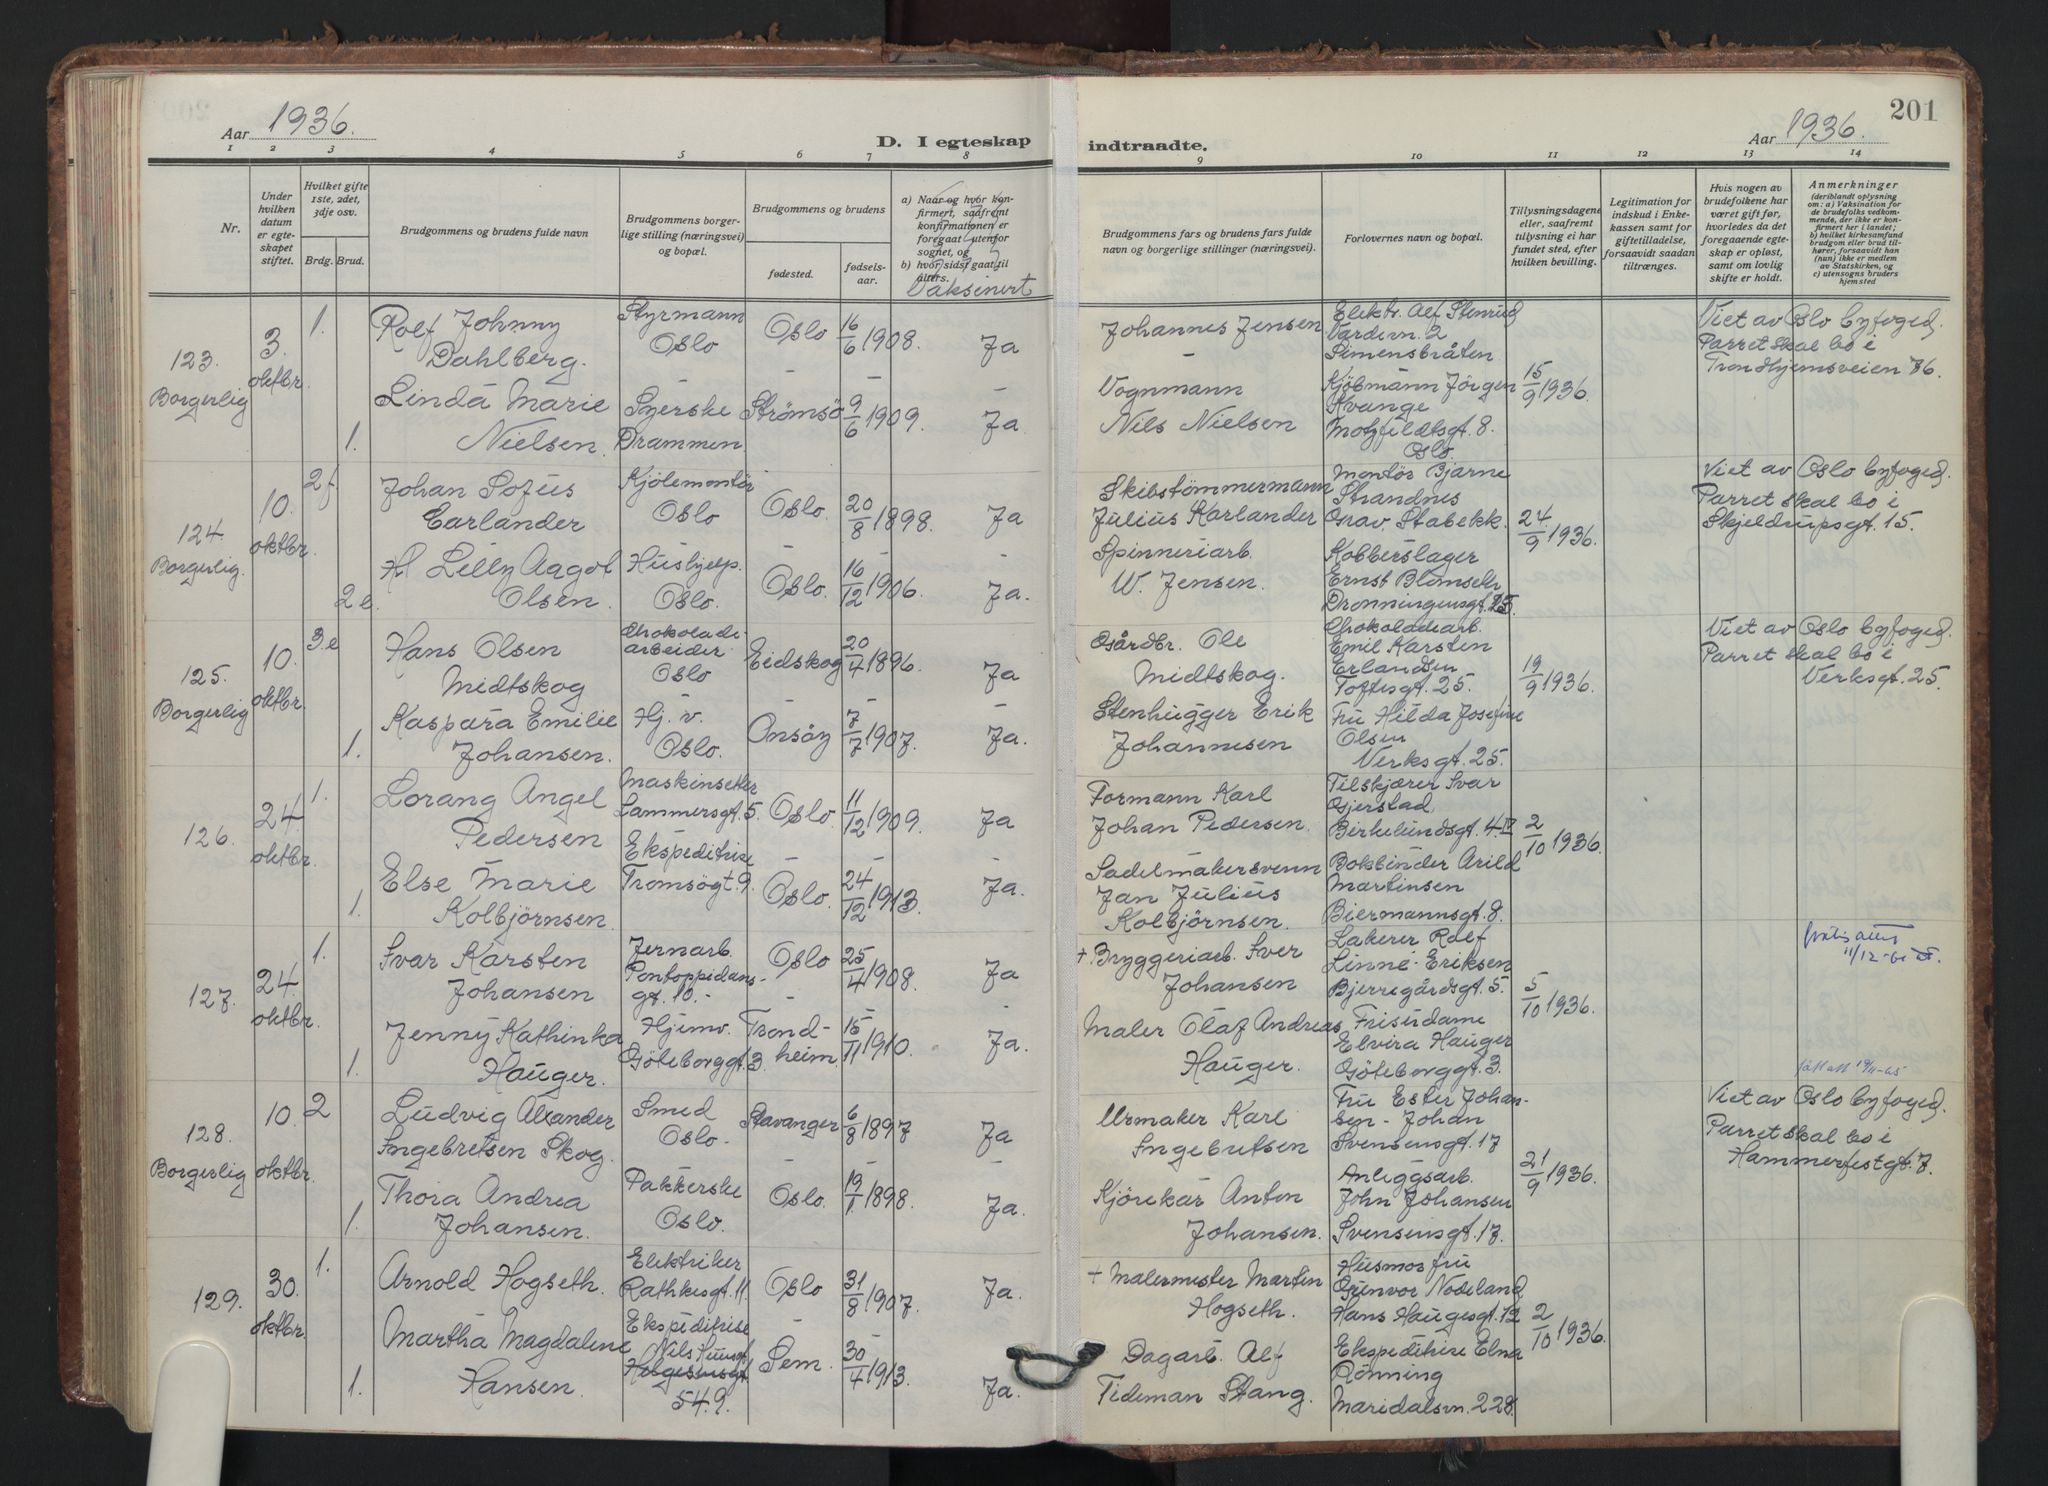 201
Aar 1936.
D. I egteskap indtraadte.
Aar 1936.
1 2 3 4 5 6 7 8 9 10 11 12 13 14
Nr.
Under hvilken datum er egteskapet stiftet.
Hvilket gifte 1ste, 2det, 3dje osv.
Brdg. Brud.
Brudgommens og brudens fulde navn
Brudgommens borgerlige stilling (næringsvei) og bopæl.
Brudgommens og brudens
fødested.
fødselsaar.
a) Naar og hvor konfirmert, saafremt konfirmationen er foregaat utenfor sognet, og
b) hvor sidst gaat til alters.
Vaksinert
Brudgommens fars og brudens fars fulde navn og borgerlige stillinger (næringsvei).
Forlovernes navn og bopæl.
Tillysningsdagene eller, saafremt tillysning ei har fundet sted, efter hvilken bevilling.
Legitimation for indskud i Enkekassen samt for giftetilladelse, forsaavidt saadan tiltrænges.
Hvis nogen av brudefolkene har været gift før, hvorledes da det foregaaende egteskap er opløst, samt om lovlig skifte er holdt.
Anmerkninger
(deriblandt oplysning om: a) Vaksination for de brudefolks vedkommende, der ikke er konfirmert her i landet;
b) hvilket kirkesamfund brudgom eller brud tilhører, forsaavidt han (hun) ikke er medlem av Statskirken, og
c) utensogns bruders hjemsted
123. Borgerlig
3. oktbr.
1.
Rolf Johnny
Dahlberg.
Styrmann
Oslo
Oslo
16/6 1908.
Ja
Johannes Jensen
Elektr. Alf Stenrud
Vardevn. 2
Simensbråten.
15/9 1936.
Viet av Oslo byfoged.
Parret skal bo i
Trondhjemsveien 86.
1.
Linda Marie
Nielsen.
Syerske
Drammen.
Strømsø
9/6 1909.
Ja
Vognmann
Nils Nielsen
Kjøbmann Jörgen
Kvange
Motzfeldtsgt. 8.
Oslo.
124. Borgerlig.
10. oktbr.
2f.
Johan Sofus
Carlander
Kjölemontör
Oslo
Oslo.
20/8 1898.
Ja
Skibstömmermann
Julius Karlander
Montør Bjarne
Strandnes
Grav. Stabekk.
24/9 1936.
Viet av Oslo byfoged.
Parret skal bo i
Skjeldrupsgt. 15.
2e.
Lilly Aagot
Olsen.
Hushjelp.
Oslo.
Oslo.
16/12 1906.
Ja.
Spinneriarb.
W. Jensen.
Kobberslager
Ernst
Dronningensgt. 25.
125. Borgerlig
10. oktbr.
3e
Hans Olsen
Midtskog
Chokoladearbeider
Oslo
Eidskog
20/4 1896.
Ja
Gårdbr. Ole
Midtskog.
Chokoladearb.
Emil Karsten
Erlandsen
Toftesgt. 25.
19/9 1936.
Viet av Oslo byfoged.
Parret skal bo i
Verksgt. 25.
1.
Kaspara Emilie
Johansen.
Hj. v.
Oslo.
Onsöy
7/7 1907.
Ja.
Stenhugger Erik
Johannesen
Fru Hilda Josefine
Olsen
Verksgt. 25.
126.
24. oktbr.
1.
Lorang Angel
Pedersen
Maskinsetter
Lammersgt. 5.
Oslo.
11/12 1909.
Ja
Formann Karl
Johan Pedersen.
Tilskjærer Ivar
Gjerstad
Birkelundsgt. 4 II
2/10 1936.
1.
Else Marie
Kolbjörnsen.
Ekspeditrise
Tromsögt. 9.
Oslo.
24/12 1913.
Ja.
Sadelmakersvenn
Jan Julius
Kolbjörnsen.
Bokbinder Arild
Martinsen
Biermannsgt. 8.
127.
24. oktbr.
1.
Ivar Karsten
Johansen
Jernarb.
Pontoppidans-
gt. 10.
Oslo
25/4 1908.
Ja
+ Bryggeriarb. Iver
Johansen
Lakerer Rolf
Linné-Eriksen
Bjerregårdsgt. 5.
5/10 1936.
11/12-61
1.
Jenny Kathinka
Hauger.
Hjemv.
Göteborggt. 3.
Trondheim.
15/11 1910.
Ja.
Maler Olaf Andreas
Hauger.
Frisördame
Elvira Hauger
Göteborggt. 3.
128. Borgerlig
10. oktbr.
2
Ludvig Alexander
Ingebretsen Skog.
Smed
Oslo.
Stavanger
6/8 1897
Ja
Urmaker Karl
Ingebretsen
Fru Ester Johan-
sen - Johan
Svensensgt. 17
21/9 1936.
Viet av Oslo byfoged.
Parret skal bo i
Hammerfestgt. 7.
1.
Thora Andrea
Johansen.
Pakkerske
Oslo.
Oslo.
19/1 1898.
Ja.
Kjörekar Anton
Johansen.
Anleggsarb.
John Johansen
Svensensgt. 17.
129.
30. oktbr.
1.
Arnold Hogseth.
Elektriker
Rathkesgt. 11.
Oslo
31/8 1907.
Ja.
+ Malermester Martin
Hogseth.
Husmorfru
Gunvor Nodeland
Hans Haugesgt. 12
2/10 1936.
1.
Martha Magdalene
Hansen.
Ekspeditrise
Nils Huusgt.
Helgesensgt
54.9.
Sem.
30/4 1913.
Ja.
Dagarb. Alf
Tideman Stang.
Ekspeditrise Elna
Rönning
Maridalsvn. 228.